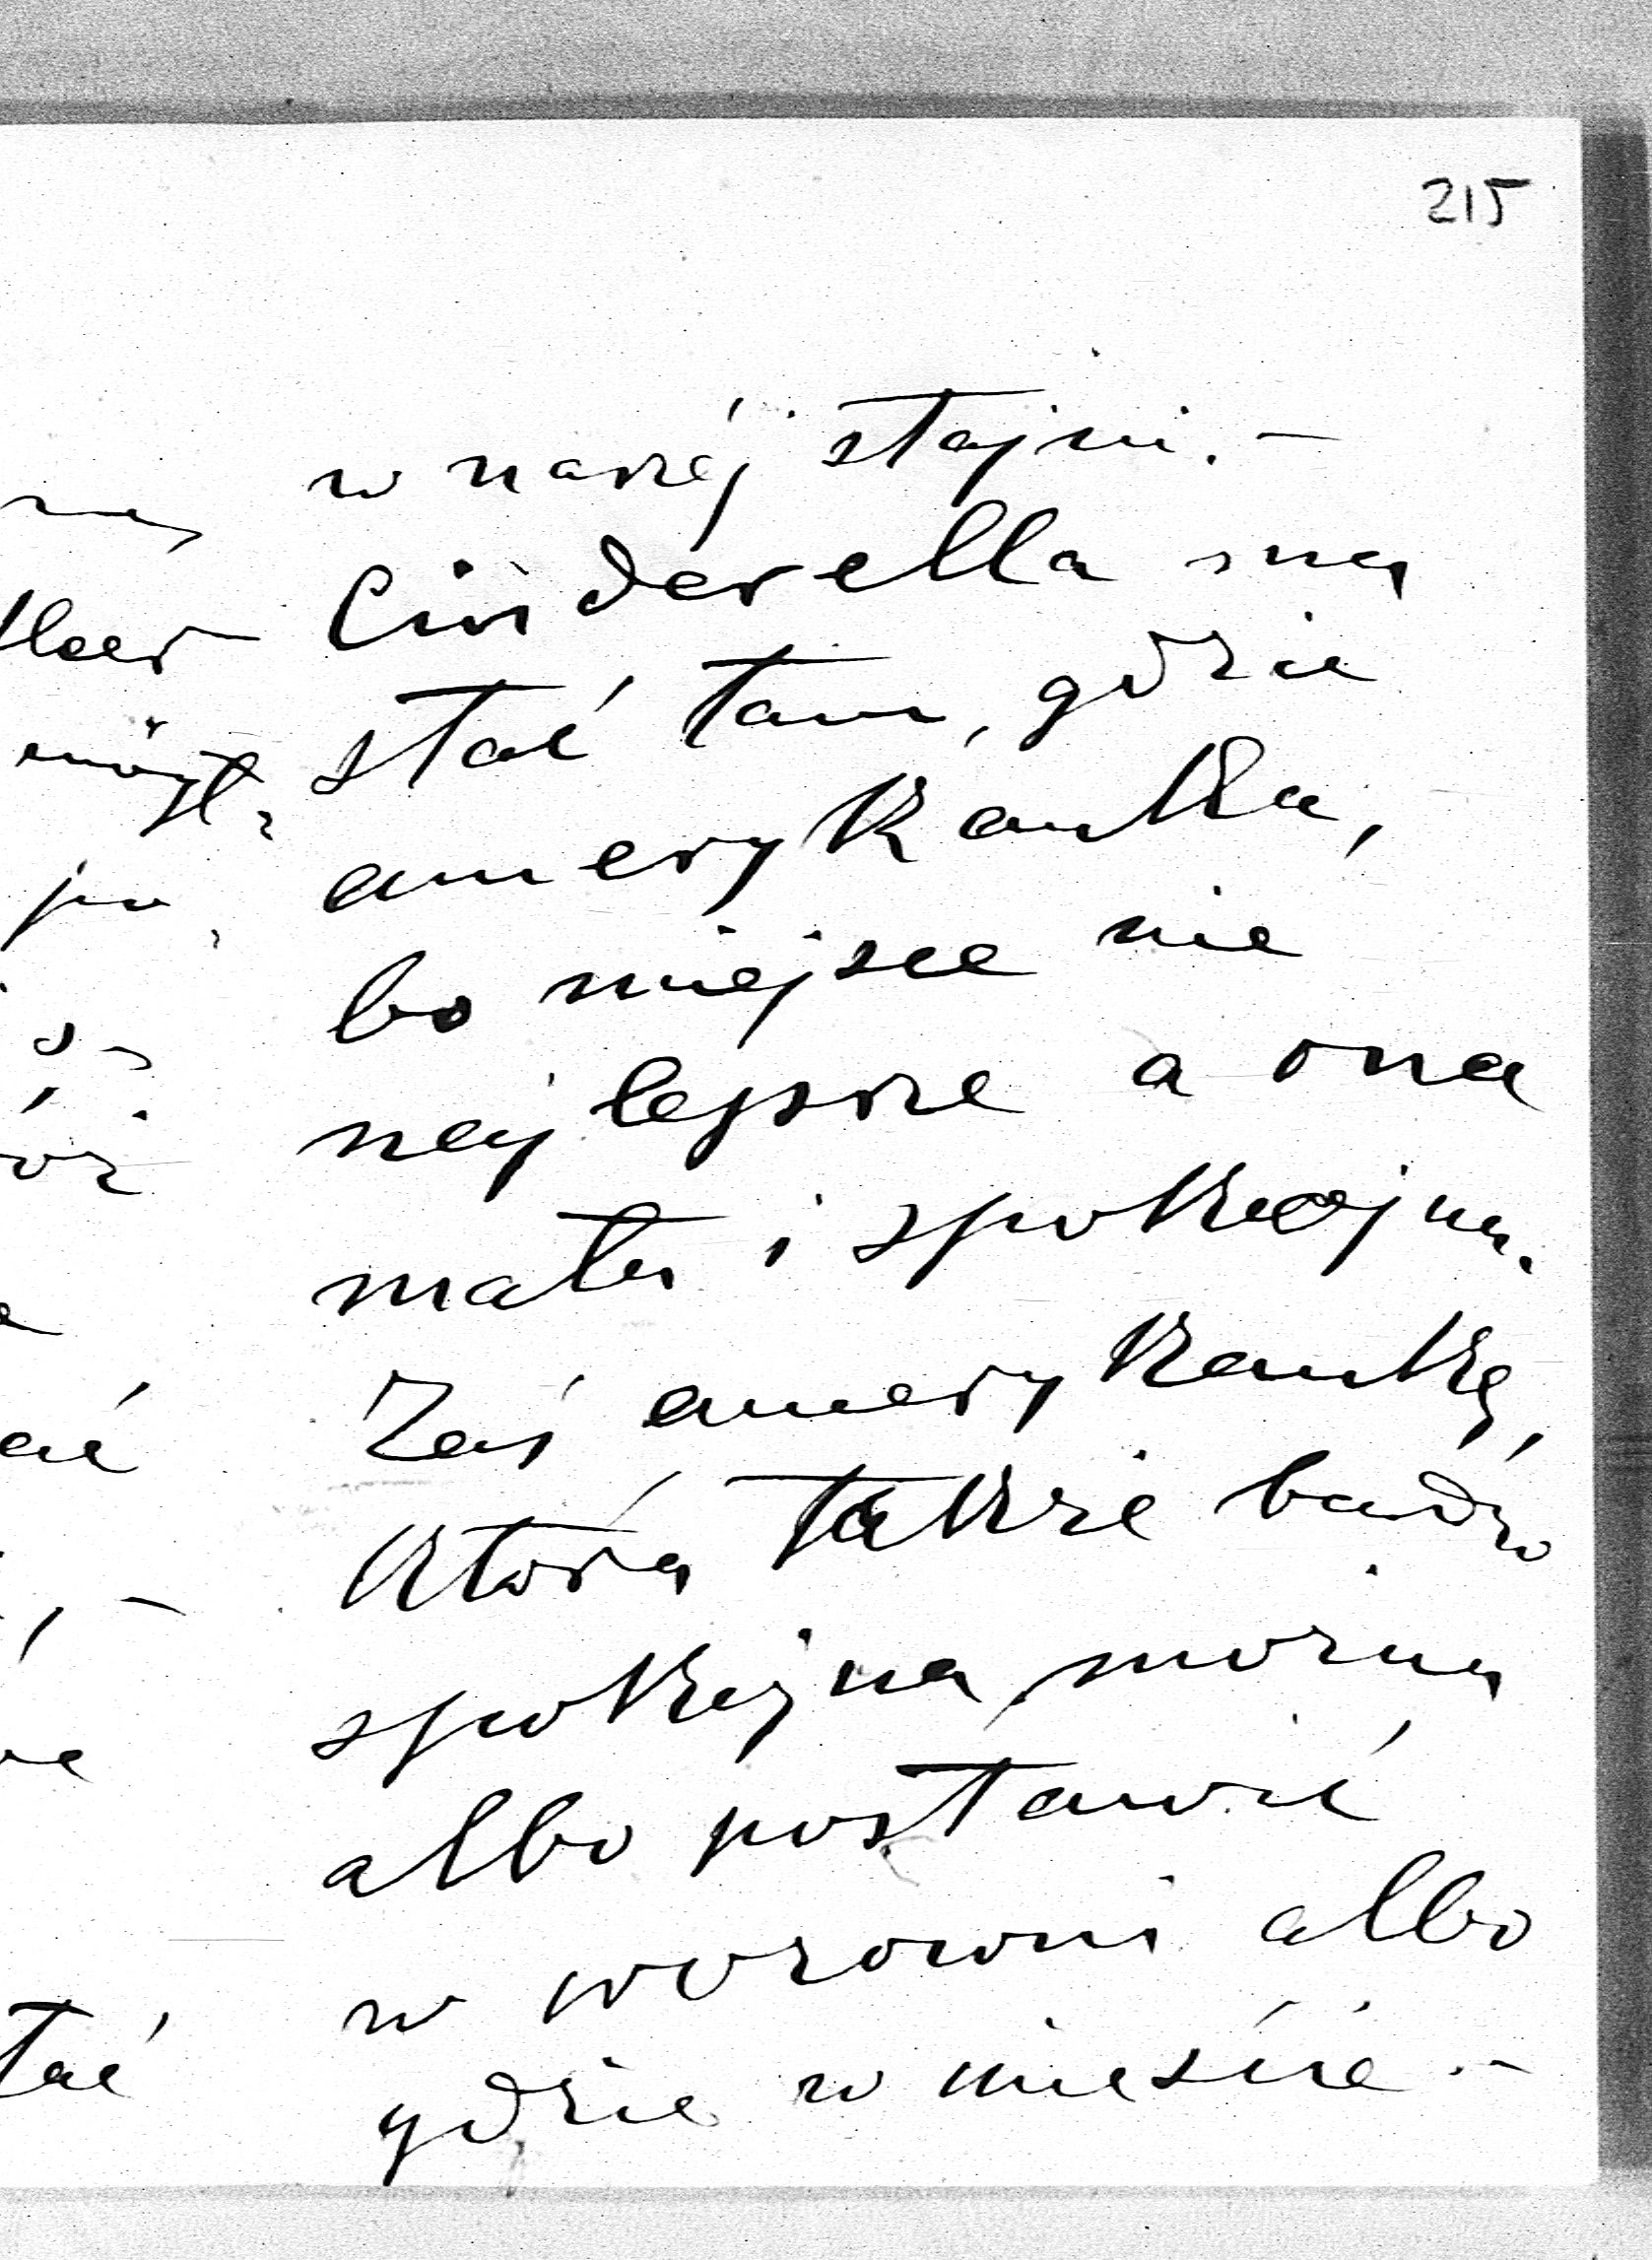 215
w naszéj stajni. –
Cinderella ma
stać tam, gdzie
amerykanka,
bo miejsce nie
najlepsze a ona
mała i spokojna.
Zaś amerykankę,
która także bardzo
spokojna, można
albo postawić
w wozowni albo
gdzie w mieście. –